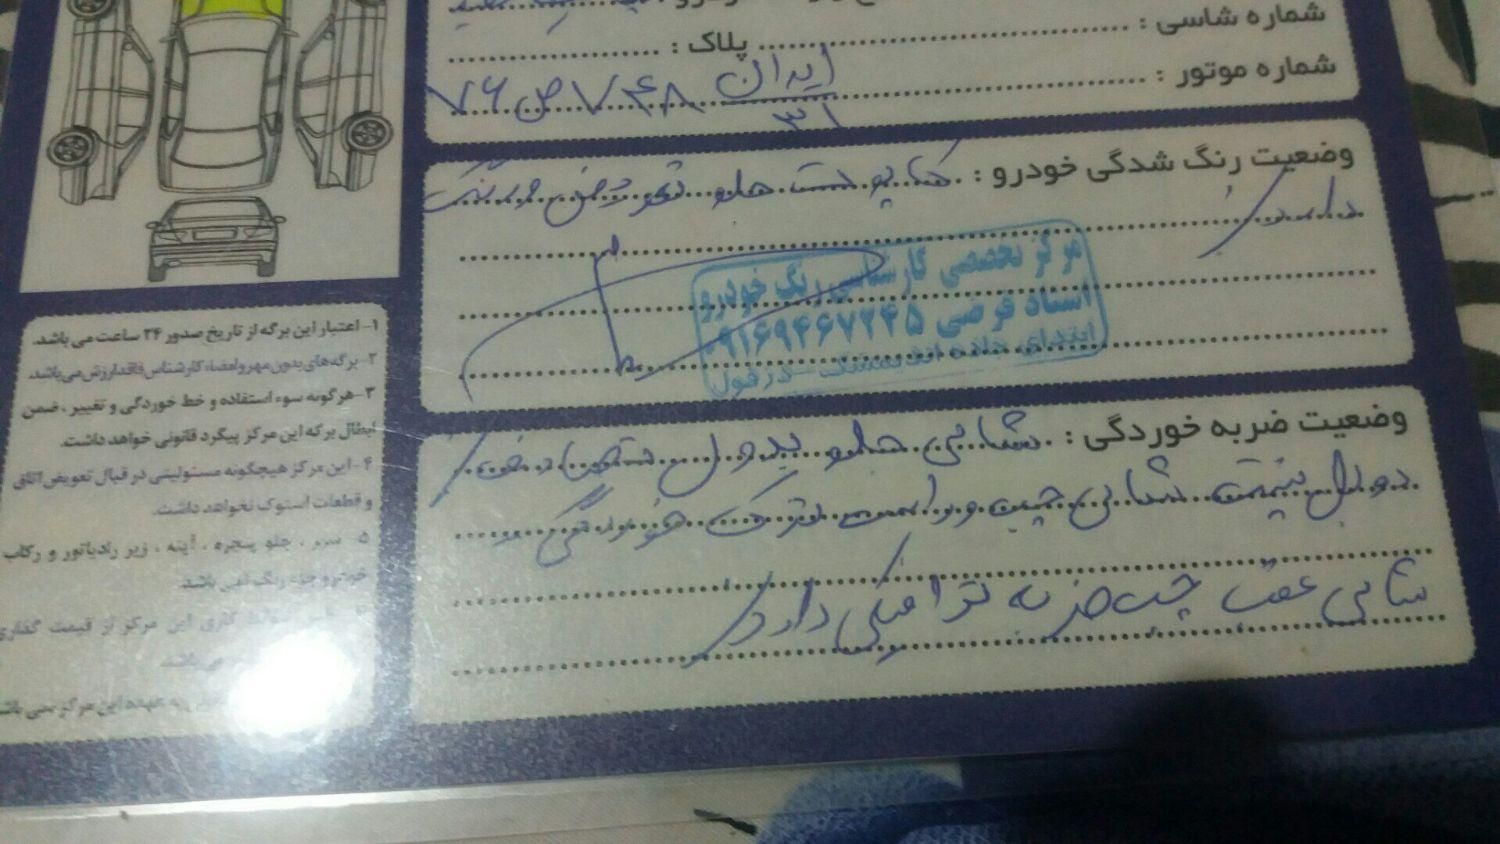 شماره شاسی :
پلاک :
شماره موتور :
ایران
۳۱
۷۴۸ ص ۷۶
وضعیت رنگ شدگی خودرو : کاپوت جلو تعویض و رنگ
دارد
مرکز تخصصی کارشناسی رنگ خودرو
استاد فرضی ۰۹۱۶۹۴۶۷۲۴۵
ابتدای جاده اندیمشک - دزفول
وضعیت ضربه خوردگی : شاسی جلو بدون
شاسی چپ و راست ترک خوردگی
شاسی عقب چپ ضربه ترافیکی دارد
۱- اعتبار این برگه از تاریخ صدور ۲۴ ساعت می باشد.
۲- برگه‌های بدون مهر و امضاء کارشناس فاقد ارزش می‌باشد.
۳- هرگونه سوء استفاده و خط خوردگی و تغییر ، ضمن
ابطال برگه این مرکز پیگرد قانونی خواهد داشت.
۴- این مرکز هیچگونه مسئولیتی در قبال تعویض اتاق
و قطعات استوک نخواهد داشت.
۵- سپر ، جلو پنجره ، آینه ، زیر رادیاتور و رکاب
خودرو جزء رنگ نمی باشد.
کاری این مرکز از قیمت گذاری
به عهده این مرکز نمی باشد